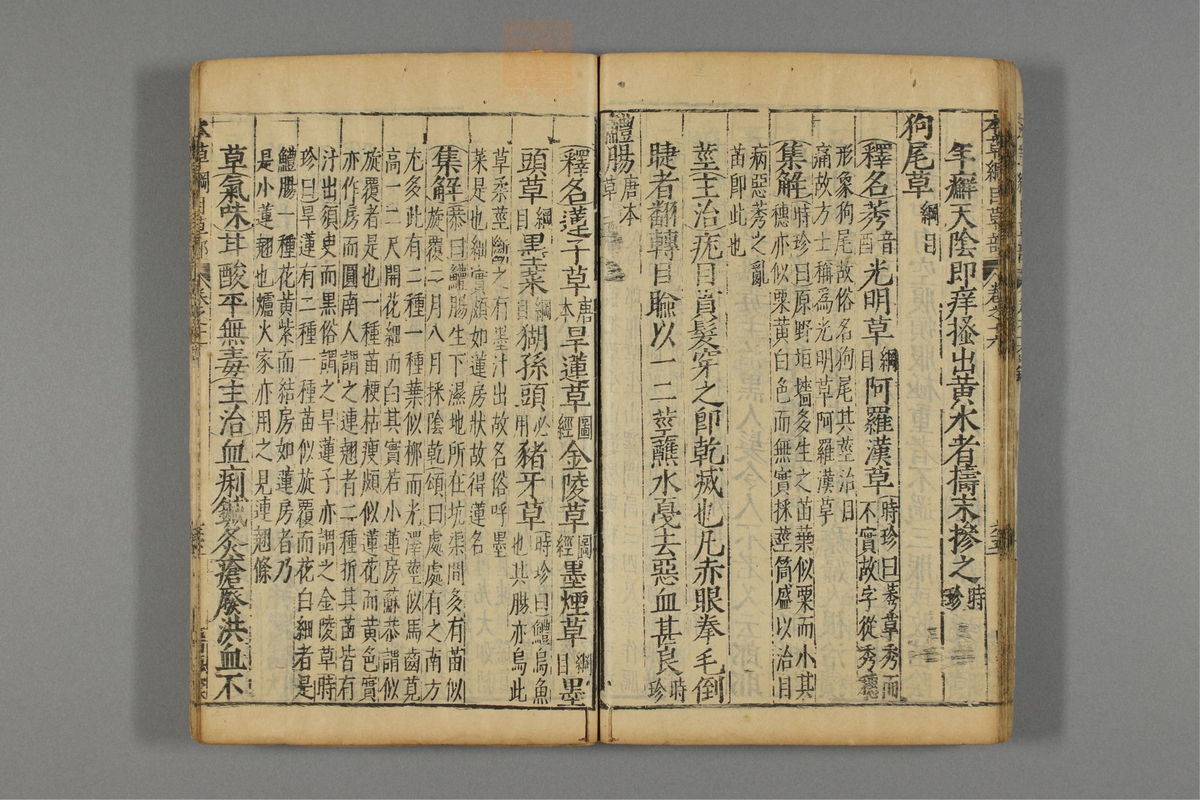 年癬天陰即痒搔出黃水者擣末摻之時珍
狗尾草綱目
釋名莠音酉光明草綱目阿羅漢草時珍曰莠草秀而不實故字從秀穗
形象狗尾故俗名狗尾其莖治目
痛故方士稱為光明草阿羅漢草
集解時珍曰原野垣墻多生之苗葉似粟而小其穗亦似粟黃白色而無實採莖筒盛以治目
病惡莠之亂
苗即此也
莖主治疣目貫髮穿之即乾滅也凡赤眼拳毛倒
睫者翻轉目瞼以一二莖蘸水戞去惡血甚良時珍
鱧腸唐本草
釋名蓮子草唐本旱蓮草圖經金陵草圖經墨煙草綱目墨
頭草綱目墨菜綱目猢孫頭必用豬牙草時珍曰鱧烏魚也其腸亦烏此
草柔莖斷之有墨汁出故名俗呼墨
菜是也細實頗如蓮房狀故得蓮名
集解恭曰鱧腸生下濕地所在坑渠間多有苗似旋覆二月八月採陰乾頌曰處處有之南方
尤多此有二種一種葉似柳而光澤莖似馬齒莧
高一二尺開花細而白其實若小蓮房蘇恭謂似
旋覆者是也一種苗梗枯瘦頗似蓮花而黃色實
亦作房而圓南人謂之連翹者二種折其苗皆有
汁出須臾而黑俗謂之旱蓮子亦謂之金陵草時
珍曰旱蓮有二種一種苗似旋覆而花白細者是
鱧腸一種花黃紫而結房如蓮房者乃
是小蓮翹也爐火家亦用之見連翹條
草氣味甘酸平無毒主治血痢鍼灸瘡發洪血不